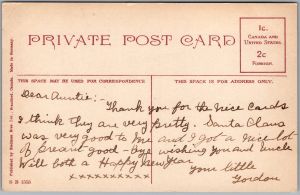 PRIVATE POST CARD
1c.
CANADA AND
UNITED STATES.
2c
FOREIGN.
THIS SPACE MAY BE USED FOR CORRESPONDENCE
THIS SPACE IS FOR ADDRESS ONLY.
Dear Auntie:-
Thank you for the nice cards
I think they are very pretty. Santa Claus
was very good to me and I got a nice lot
of presents good-bye wishing you and Uncle
Will both a Happy New Year
Your little
Gordon
Made in Germany.